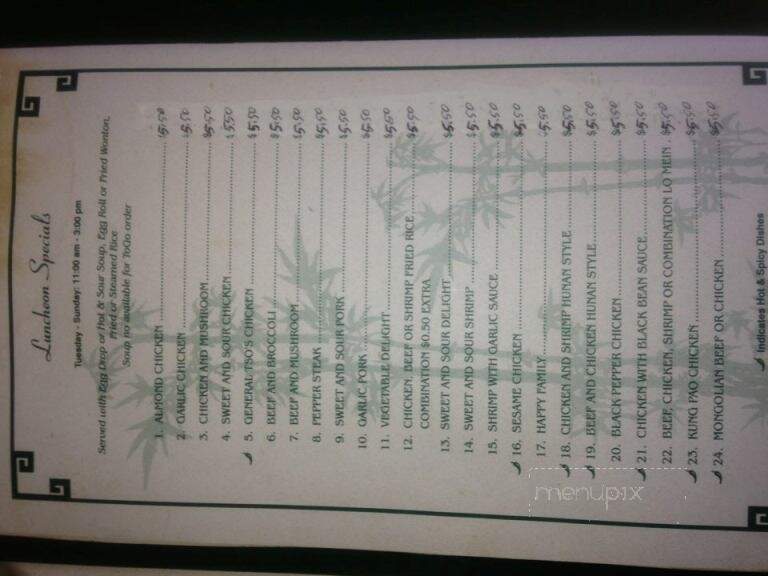 Luncheon Specials
Tuesday - Sunday: 11:00 am - 3:00 pm
Served with Egg Drop or Hot & Sour Soup, Egg Roll or Fried Wonton,
Fried or Steamed Rice
Soup no available for ToGo order
1. ALMOND CHICKEN $5.50
2. GARLIC CHICKEN $5.50
3. CHICKEN AND MUSHROOM $5.50
4. SWEET AND SOUR CHICKEN $5.50
5. GENERAL TSO'S CHICKEN $5.50
6. BEEF AND BROCCOLI $5.50
7. BEEF AND MUSHROOM $5.50
8. PEPPER STEAK $5.50
9. SWEET AND SOUR PORK $5.50
10. GARLIC PORK $5.50
11. VEGETABLE DELIGHT $5.50
12. CHICKEN, BEEF OR SHRIMP FRIED RICE $5.50
COMBINATION $0.50 EXTRA
13. SWEET AND SOUR DELIGHT $5.50
14. SWEET AND SOUR SHRIMP $5.50
15. SHRIMP WITH GARLIC SAUCE $5.50
16. SESAME CHICKEN $5.50
17. HAPPY FAMILY 5.50
18. CHICKEN AND SHRIMP HUNAN STYLE $5.50
19. BEEF AND CHICKEN HUNAN STYLE $5.50
20. BLACK PEPPER CHICKEN $5.50
21. CHICKEN WITH BLACK BEAN SAUCE $5.50
22. BEEF, CHICKEN, SHRIMP OR COMBINATION LO MEIN $5.50
23. KUNG PAO CHICKEN $5.50
24. MONGOLIAN BEEF OR CHICKEN $5.50
Indicates Hot & Spicy Dishes
menupix